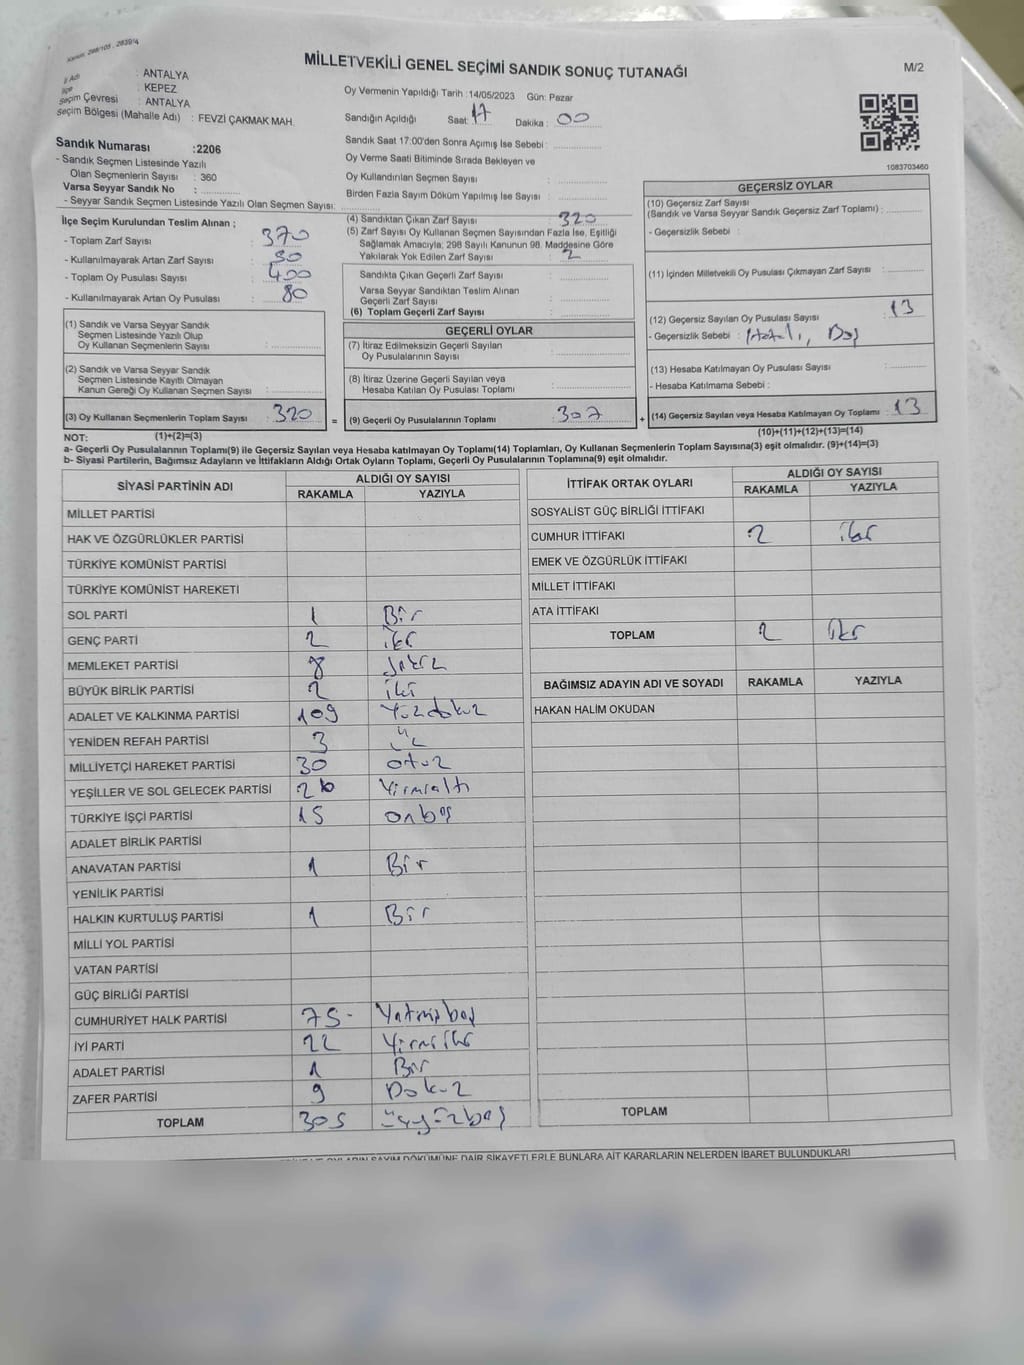 Kanun: 298/105 , 2839/4
MİLLETVEKİLİ GENEL SEÇİMİ SANDIK SONUÇ TUTANAĞI
M/2
İl Adı : ANTALYA
İlçe : KEPEZ
Seçim Çevresi : ANTALYA
Seçim Bölgesi (Mahalle Adı) : FEVZİ ÇAKMAK MAH.
Oy Vermenin Yapıldığı Tarih : 14/05/2023 Gün: Pazar
Sandığın Açıldığı Saat: 17 Dakika : 00
Sandık Saat 17:00'den Sonra Açımış İse Sebebi :
Oy Verme Saati Bitiminde Sırada Bekleyen ve
Oy Kullandırılan Seçmen Sayısı :
Birden Fazla Sayım Döküm Yapılmış İse Sayısı :
1083703460
Sandık Numarası :2206
- Sandık Seçmen Listesinde Yazılı
Olan Seçmenlerin Sayısı : 360
Varsa Seyyar Sandık No :
- Seyyar Sandık Seçmen Listesinde Yazılı Olan Seçmen Sayısı:
İlçe Seçim Kurulundan Teslim Alınan ;
- Toplam Zarf Sayısı : 370
- Kullanılmayarak Artan Zarf Sayısı : 50
- Toplam Oy Pusulası Sayısı : 400
- Kullanılmayarak Artan Oy Pusulası : 80
(1) Sandık ve Varsa Seyyar Sandık
Seçmen Listesinde Yazılı Olup
Oy Kullanan Seçmenlerin Sayısı :
(2) Sandık ve Varsa Seyyar Sandık
Seçmen Listesinde Kayıtlı Olmayan
Kanun Gereği Oy Kullanan Seçmen Sayısı :
(3) Oy Kullanan Seçmenlerin Toplam Sayısı : 320
(4) Sandıktan Çıkan Zarf Sayısı : 320
(5) Zarf Sayısı Oy Kullanan Seçmen Sayısından Fazla İse, Eşitliği
Sağlamak Amacıyla; 298 Sayılı Kanunun 98. Maddesine Göre
Yakılarak Yok Edilen Zarf Sayısı : 2
Sandıkta Çıkan Geçerli Zarf Sayısı :
Varsa Seyyar Sandıktan Teslim Alınan
Geçerli Zarf Sayısı :
(6) Toplam Geçerli Zarf Sayısı :
GEÇERLİ OYLAR
(7) İtiraz Edilmeksizin Geçerli Sayılan
Oy Pusulalarının Sayısı :
(8) İtiraz Üzerine Geçerli Sayılan veya
Hesaba Katılan Oy Pusulaları Toplamı :
= (9) Geçerli Oy Pusulalarının Toplamı : 307
GEÇERSİZ OYLAR
(10) Geçersiz Zarf Sayısı
(Sandık ve Varsa Seyyar Sandık Geçersiz Zarf Toplamı) :
- Geçersizlik Sebebi :
(11) İçinden Milletvekili Oy Pusulası Çıkmayan Zarf Sayısı :
(12) Geçersiz Sayılan Oy Pusulası Sayısı : 13
- Geçersizlik Sebebi : Boş
(13) Hesaba Katılmayan Oy Pusulası Sayısı :
- Hesaba Katılmama Sebebi :
+ (14) Geçersiz Sayılan veya Hesaba Katılmayan Oy Toplamı : 13
NOT: (1)+(2)=(3)
(10)+(11)+(12)+(13)=(14)
a- Geçerli Oy Pusulalarının Toplamı(9) ile Geçersiz Sayılan veya Hesaba katılmayan Oy Toplamı(14) Toplamları, Oy Kullanan Seçmenlerin Toplam Sayısına(3) eşit olmalıdır. (9)+(14)=(3)
b- Siyasi Partilerin, Bağımsız Adayların ve İttifakların Aldığı Ortak Oyların Toplamı, Geçerli Oy Pusulalarının Toplamına(9) eşit olmalıdır.
SİYASİ PARTİNİN ADI ALDIĞI OY SAYISI
RAKAMLA YAZIYLA
MİLLET PARTİSİ
HAK VE ÖZGÜRLÜKLER PARTİSİ
TÜRKİYE KOMÜNİST PARTİSİ
TÜRKİYE KOMÜNİST HAREKETİ
SOL PARTİ 1 Bir
GENÇ PARTİ 2 iki
MEMLEKET PARTİSİ 8 sekiz
BÜYÜK BİRLİK PARTİSİ 2 iki
ADALET VE KALKINMA PARTİSİ 109 Yüzdokuz
YENİDEN REFAH PARTİSİ 3 üç
MİLLİYETÇİ HAREKET PARTİSİ 30 otuz
YEŞİLLER VE SOL GELECEK PARTİSİ 26 Yirmialtı
TÜRKİYE İŞÇİ PARTİSİ 15 onbeş
ADALET BİRLİK PARTİSİ
ANAVATAN PARTİSİ 1 Bir
YENİLİK PARTİSİ
HALKIN KURTULUŞ PARTİSİ 1 Bir
MİLLİ YOL PARTİSİ
VATAN PARTİSİ
GÜÇ BİRLİĞİ PARTİSİ
CUMHURİYET HALK PARTİSİ 75- Yetmişbeş
İYİ PARTİ 22 Yirmiiki
ADALET PARTİSİ 1 Bir
ZAFER PARTİSİ 9 Dokuz
TOPLAM 305 üçyüzbeş
İTTİFAK ORTAK OYLARI ALDIĞI OY SAYISI
RAKAMLA YAZIYLA
SOSYALİST GÜÇ BİRLİĞİ İTTİFAKI
CUMHUR İTTİFAKI 2 iki
EMEK VE ÖZGÜRLÜK İTTİFAKI
MİLLET İTTİFAKI
ATA İTTİFAKI
TOPLAM 2 iki
BAĞIMSIZ ADAYIN ADI VE SOYADI RAKAMLA YAZIYLA
HAKAN HALİM OKUDAN
TOPLAM
OYLARIN SAYIM DÖKÜMÜNE DAİR ŞİKAYETLERLE BUNLARA AİT KARARLARIN NELERDEN İBARET BULUNDUKLARI